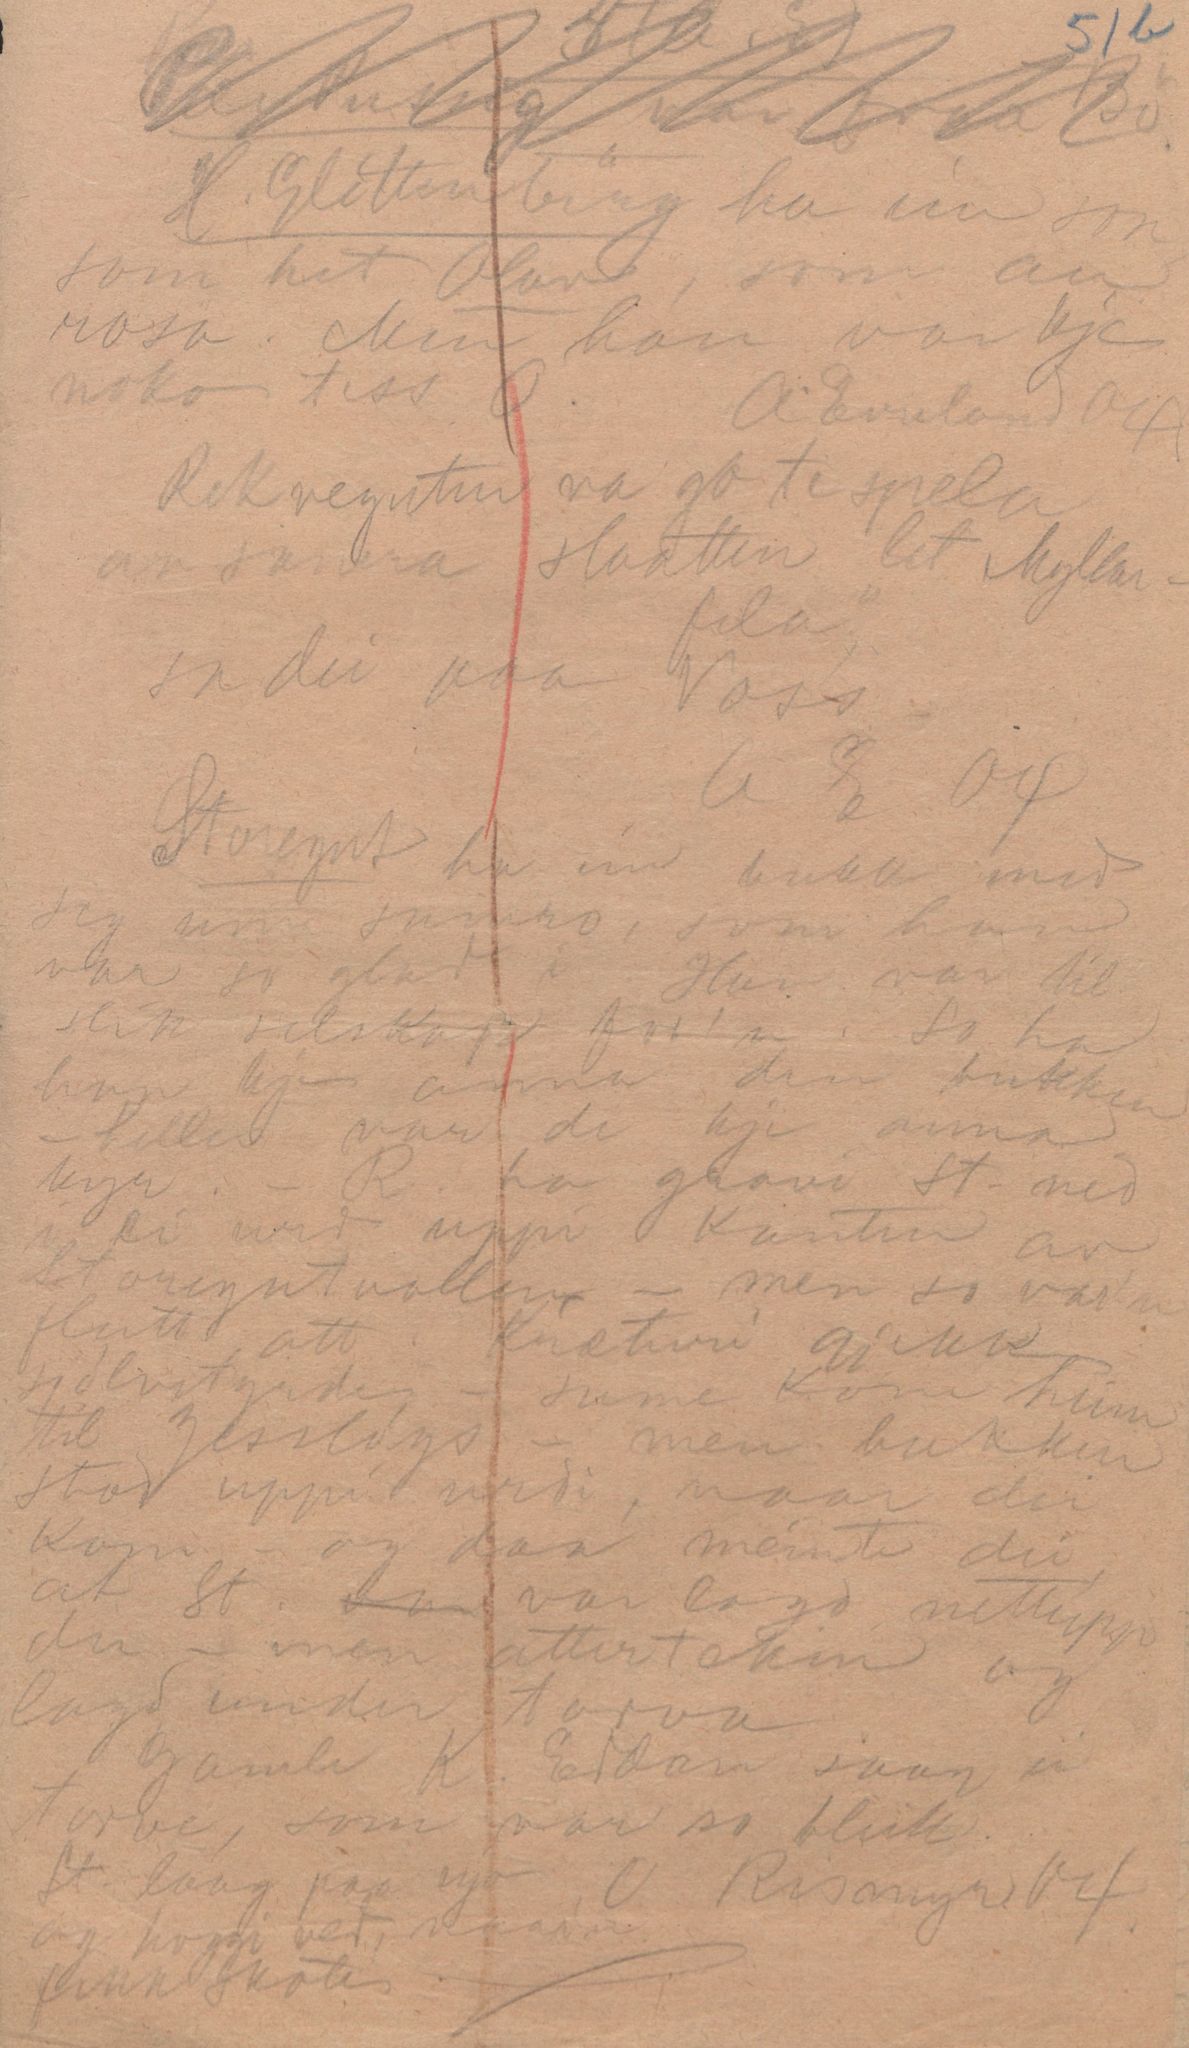 5/6
var
H. Glittenberg ha ein son
som het Olav, som au
rosa. Men han var kje
noko tess
A Evenland 04
va go te spela
slaatten let "Myllar-
fela"
sa dei paa Voss
A E 04
Storegut ha ein bukk med
seg um sumro, som han
var so glad i Han var til
slik selskap for'n. So ha
han kje anna den bukken
- helles var de kje anna
kyr. - R. ha gravi St. ned
i ei urd uppi kanten av
Storegutvollen - men so var'n
flutt att. Krøturi gjekk
sjølvstyrdes - sume kom heim
til - men bukken
stod uppi urdi, naar dei
kom - og daa meinte dei,
at St. var lagd nettupp
der - men atterteken og
lagd under torva
Gamle K. Eidan saag ei
torve, som var so bleik.
St. laag paa O Rismyr 04.
og hoggi ved,
fekk